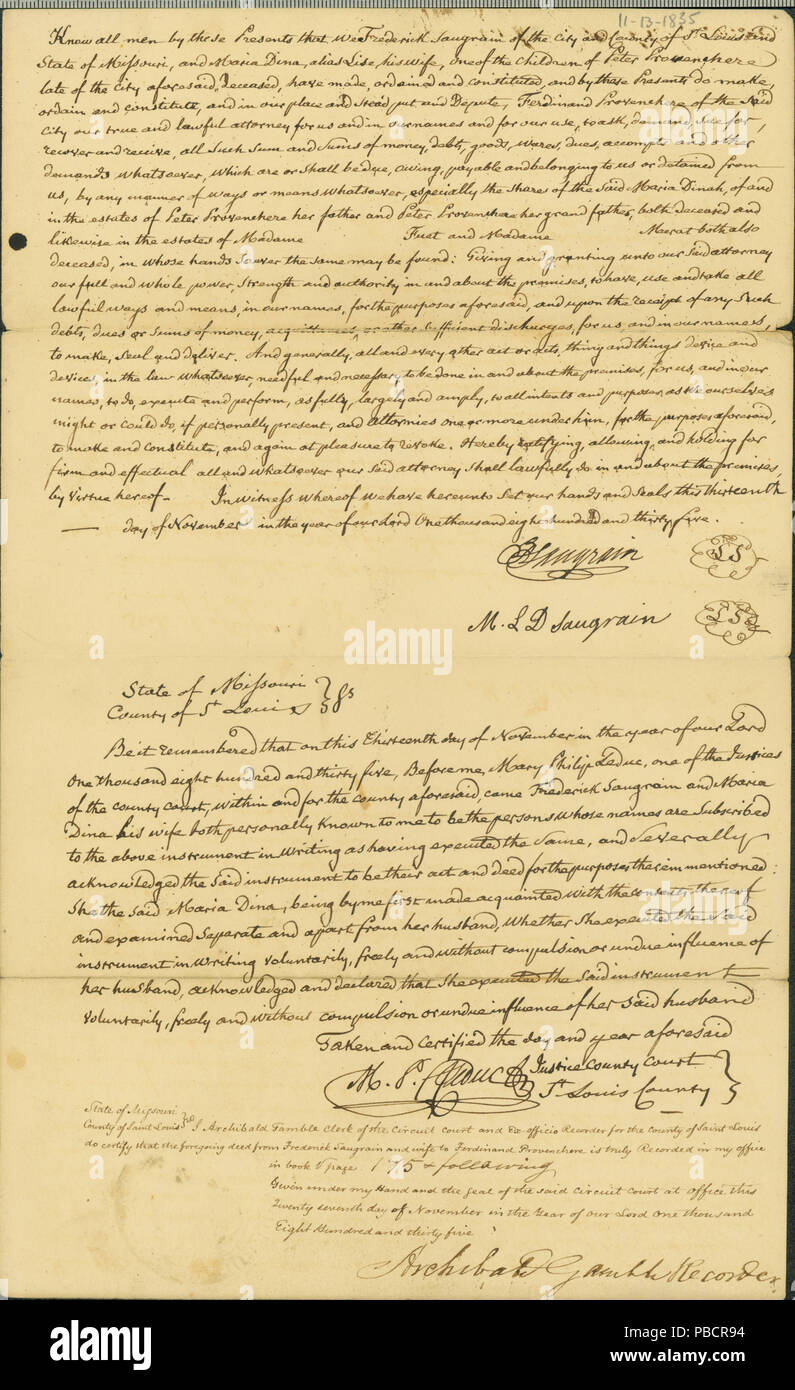 11-13-1835
Know all men by these Presents that We Frederick Saugrain of the City and County of St Louis and
State of Missouri, and Maria Dina, alias Lise, his wife, one of the Children of Peter Provenchere
late of the city aforesaid, deceased, have made, ordained and constituted, and by these Presents do make,
ordain and constitute, and in our place and Stead put and Depute, Ferdinand Provenchere of the Said
City our true and lawful attorney for us and in our names and for our use, to ask, demand, sue for,
recover and receive, all Such Sum and Sums of money, debts, goods, wares, dues, accompts and other
demands whatsoever, which are or Shall be due, owing, payable and belonging to us or detained from
us, by any manner of ways or means whatsoever, especially the Share of the Said Maria Dinah, of and
in the estates of Peter Provenchere her father and Peter Provenchere her grand father, both deceased and
likewise in the estates of Madame Huet and Madame both also
deceased, in whose hands Soever the same may be found: Giving and granting unto our Said attorney
our full and whole power, Strength and authority in and about the premises, to have, use and take all
lawful ways and means, in our names, for the purposes aforesaid, and upon the receipt of any Such
debts, dues or Sums of money, acquittances, or other Sufficient discharges, for us, and in our names,
to make, Seal and deliver. And generally, all and every other act or acts, thing and things device and
devices, in the law whatsoever, needful and necessary to be done in and about the premises, for us, and in our
names, to do, execute and perform, as fully, largely and amply, to all intents and purposes, as we ourselves
might or could do, if personally present, and attornies one or more under him, for the purposes aforesaid,
to make and constitute, and again at pleasure to revoke. Hereby ratifying, allowing, and holding for
firm and effectual all and whatsoever our Said attorney Shall lawfully do in and about the premises,
by virtue hereof— In Witness whereof We have hereunto Set our hands and Seals this thirteenth
— day of November in the year of our Lord One thousand eight hundred and thirty five.
Saugrain LS
M. L D Saugrain LS
State of Missouri } Ss
County of St Louis
Be it remembered that on this Thirteenth day of November in the year of our Lord
One thousand eight hundred and thirty five, Before me, Mary Philip Leduc, one of the Justices
of the county court, within and for the county aforesaid, came Frederick Saugrain and Maria
Dina his wife both personally Known to me to be the persons whose names are Subscribed
to the above instrument in Writing as having executed the Same, and Severally
acknowledged the Said instrument to be their act and deed for the purposes therein mentioned:
She the Said Maria Dina, being by me first made acquainted with the contents thereof
and examined Separate and apart from her husband, whether She executed the Said
instrument in Writing voluntarily, freely and without compulsion or undue influence of
her husband, acknowledged and declared that She executed the Said instrument
voluntarily, freely and without compulsion or undue influence of her Said husband
Taken and Certified the day and year aforesaid
M. P. Leduc Justice County Court }
St Louis County
State of Missouri
County of Saint Louis } ss I Archibald Gamble Clerk of the Circuit Court and Ex officio Recorder for the County of Saint Louis
do certify that the foregoing deed from Frederick Saugrain and wife to Ferdinand Provenchere is truly Recorded in my office
in book V page 175 & following
Given under my Hand and the Seal of the said Circuit Court at office this
Twenty seventh day of November in the Year of our Lord one thousand
Eight Hundred and thirty five
Archibald Gamble Recorder
alamy
Image ID: PBCR94
www.alamy.com